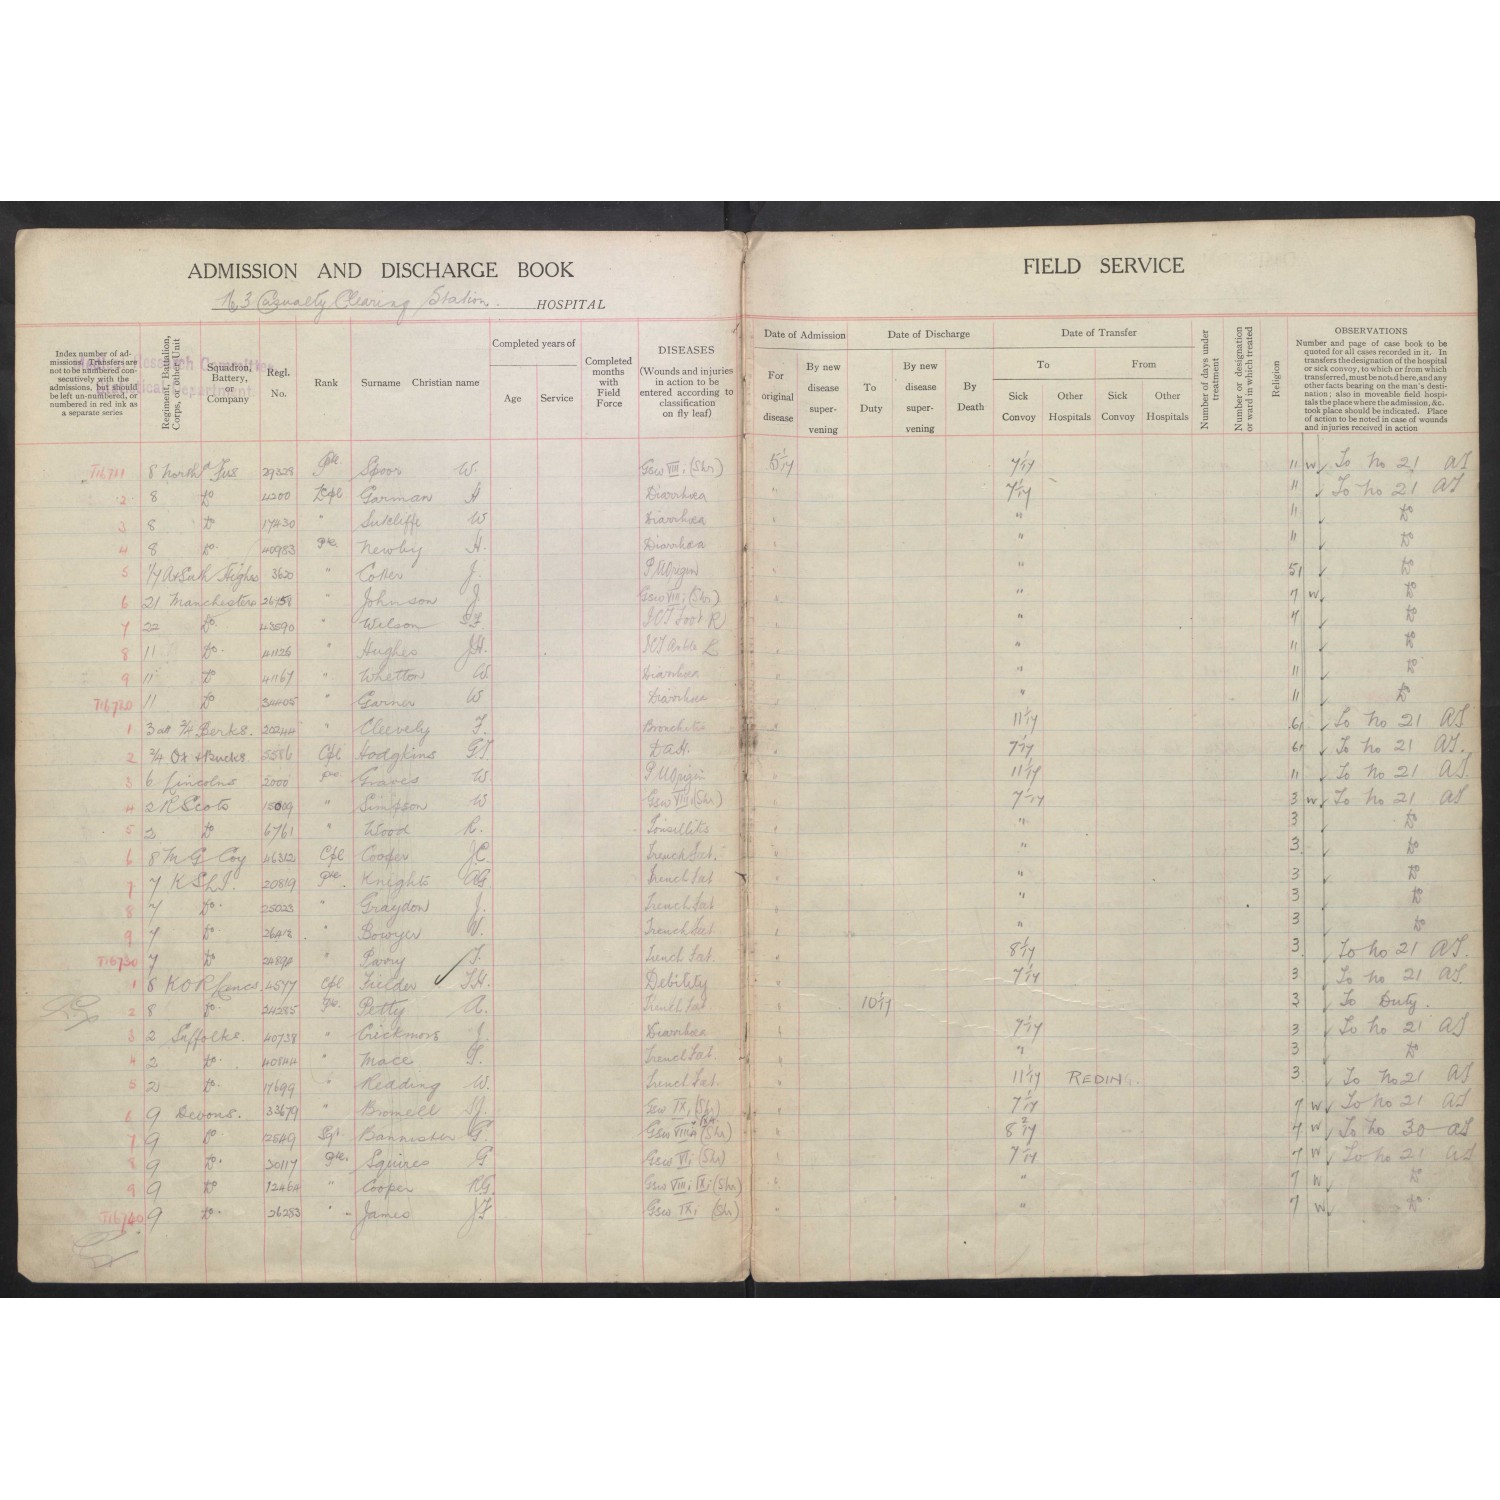 ADMISSION AND DISCHARGE BOOK
No 3 Casualty Clearing Station. HOSPITAL
FIELD SERVICE
Index number of admissions. Transfers are not to be numbered consecutively with the admissions, but should be left un-numbered, or numbered in red ink as a separate series
Regiment, Battalion, Corps, or other Unit
Squadron, Battery, or Company
Regl. No.
Rank
Surname Christian name
Completed years of
Age Service
Completed months with Field Force
DISEASES
(Wounds and injuries in action to be entered according to classification on fly leaf)
Date of Admission
For original disease
By new disease supervening
Date of Discharge
To Duty
By new disease supervening
By Death
Date of Transfer
To From
Sick Convoy Other Hospitals Sick Convoy Other Hospitals
Number of days under treatment
Number or designation or ward in which treated
Religion
OBSERVATIONS
Number and page of case book to be quoted for all cases recorded in it. In transfers the designation of the hospital or sick convoy, to or from which transferred, must be noted here, and any other facts bearing on the man's destination; also in moveable field hospitals the place where the admission, &c. took place should be indicated. Place of action to be noted in case of wounds and injuries received in action
8 North'd Fus 29328 Pte. Spoor W. Gsw VIII, (Shr) 5/1/17 7/1/17 11 W To No 21 AT
2 8 Do 4200 L/Cpl Garman A Diarrhœa " 7/1/17 11 To No 21 AT
3 8 Do 17430 " Sutcliffe W Diarrhœa " " 11 Do
4 8 Do. 40983 Pte. Newby H. Diarrhœa " " 11 Do
5 1/7 A & Suth Highs 3620 " J. P.U.Origin " " 51 Do
6 21 Manchesters 26758 " Johnson J. Gsw VIII, (Shr) " " 7 W Do
7 22 Do 43590 " Wilson " " 7 Do
8 11 Do. 41126 " Hughes J.H. ICT Ankle L " " 11 Do
9 11 Do 41167 " Whetton W Diarrhœa " " 11 Do
T16720 11 Do 34405 " Garner W Diarrhœa " " 11 Do
1 2/4 Berks. 20244 " Cleevely F. Bronchitis " 11/1/17 61 To No 21 AT
2 2/4 Ox & Bucks 5586 Cpl Hodgkins G.T. D.A.H. " 7/1/17 61 To No 21 AT.
3 6 Lincolns 2000 Pte. Graves W. P.U.Origin " 11/1/17 11 To No 21 AT
4 2 R Scots 15009 " Simpson W Gsw VIII, (Shr) " 7/1/17 3 W To No 21 AT
5 2 Do 6761 " Wood R. Tonsillitis " " 3 Do
6 8 M G Coy 46312 Cpl Cooper J.C. Trench Feet. " " 3. Do
7 7 K.S.L.I. 20819 Pte. Knights A.G. Trench Feet " " 3 Do
8 7 Do. 25023 " Graydon J. Trench Feet " " 3 Do
9 7 Do. 26412 " Bowyer W. Trench Feet " " 3 Do
T16730 7 Do 24890 " Parry T. Trench Feet. " 8/1/17 3. To No 21 AT.
1 8 K.O.R. Lancs 4577 Cpl Fielder T.H. Debility " 7/1/17 3 To No 21 AT.
2 8 Do. 24285 Pte. Petty A. Trench Feet " 10/1/17 3 To Duty.
3 2 Suffolks. 40738 " Crickmore J. Diarrhœa " 7/1/17 3 To No 21 AT
4 2 Do. 40844 " Mace G. Trench Feet. " " 3 Do
5 2 Do. 17699 " Reading W. Trench Feet. " 11/1/17 REDING. 3. To No 21 AT
6 9 Devons. 33679 " Bromell Gsw IX, (Shr) " 7/1/17 7 W To No 21 AT
7 9 Do 2549 Sgt. Bannister G. Gsw VIII (Shr) " 8/2/17 7 W To No 30 AT
8 9 Do. 30117 Pte. Squires G Gsw VI, (Shr) " 7/1/17 7 W To No 21 AT
9 9 Do 12464 " Cooper R.G. Gsw VIII, IX, (Shr) " " 7 W Do
T16740 9 Do. 26283 " James J.F. Gsw IX, (Shr) " " 7 W Do